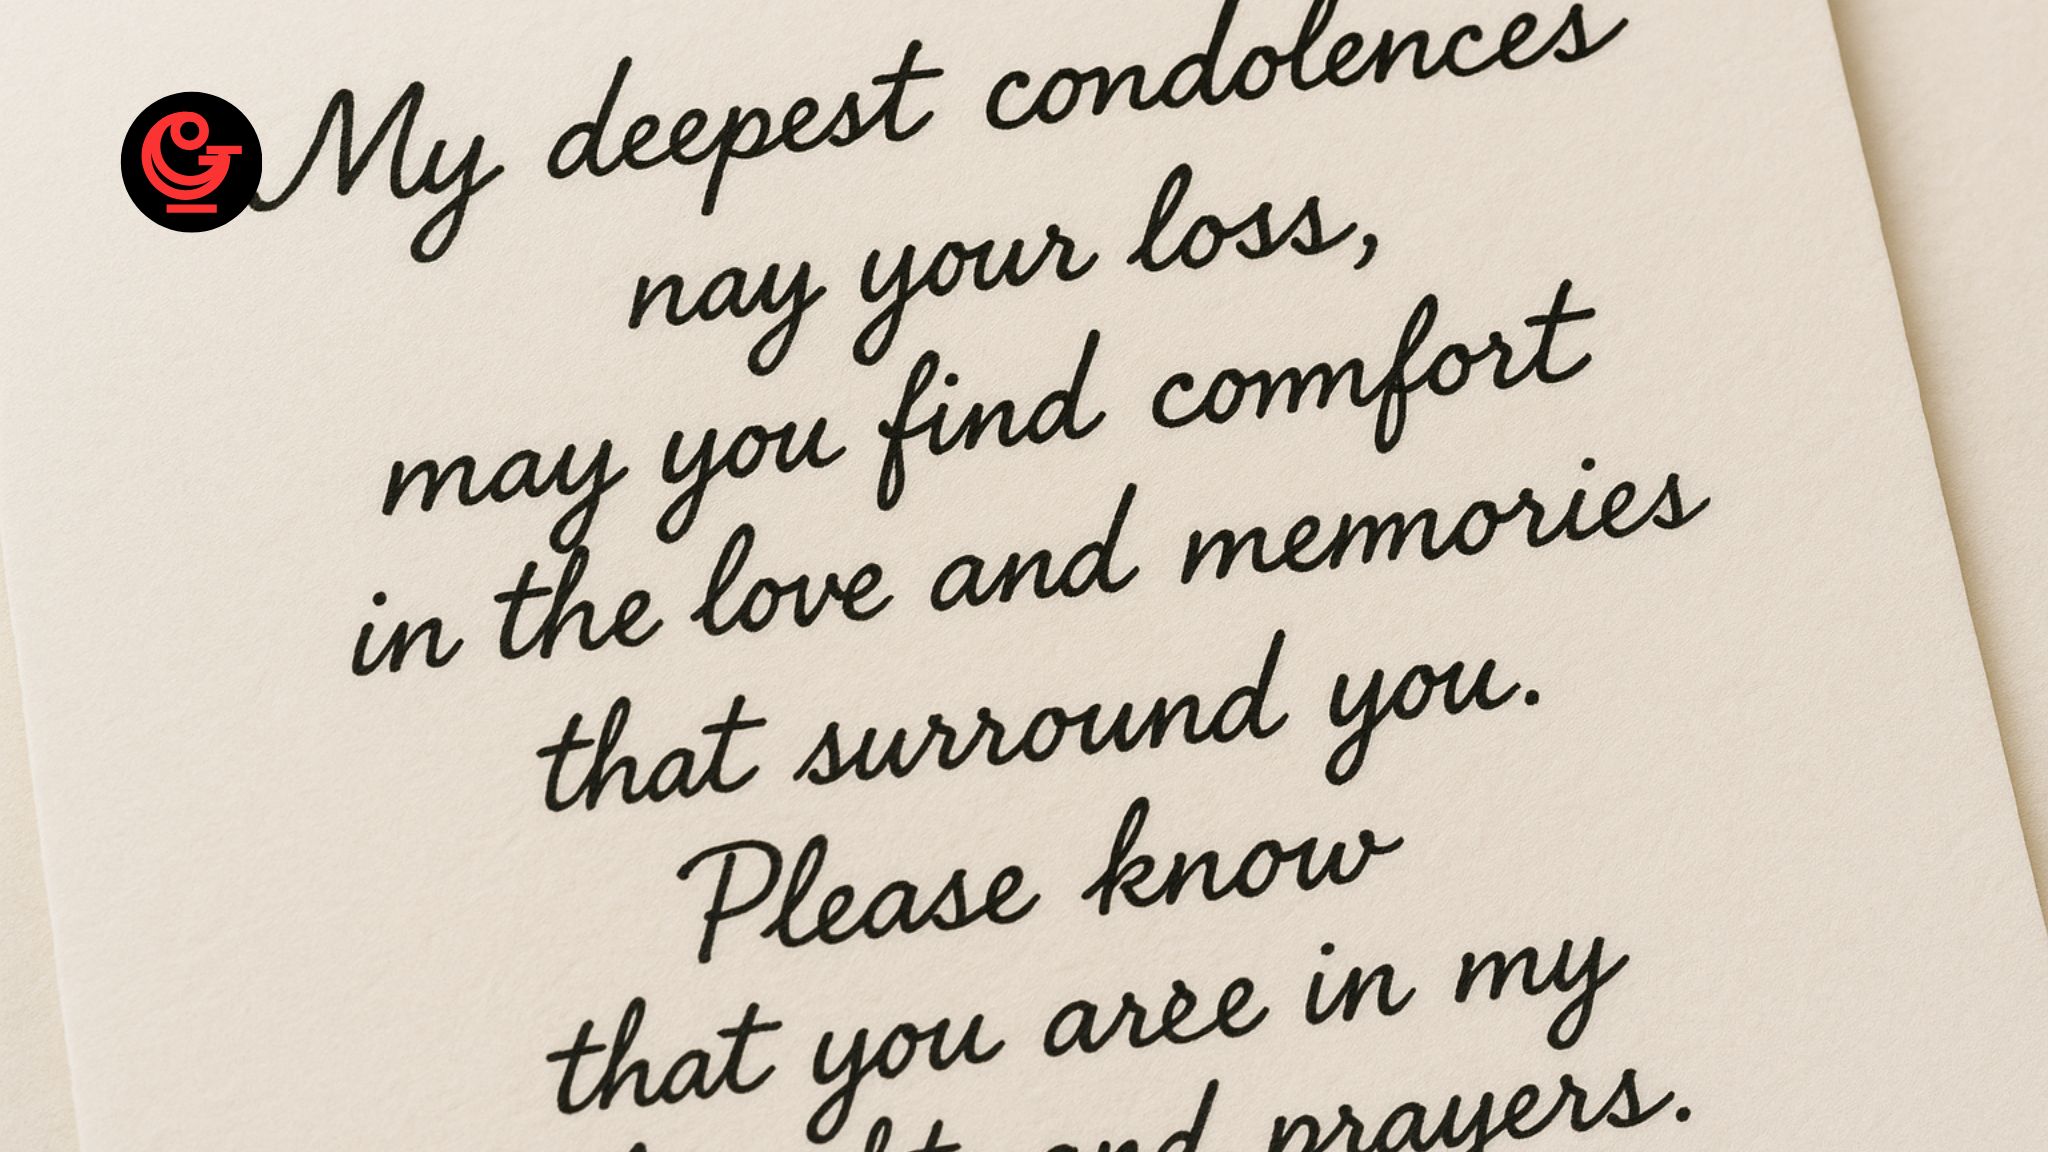 My deepest condolences
nay your loss,
may you find comnfort
in the love and memnories
that surround you.
Please know
that you aree in my
and prayers.